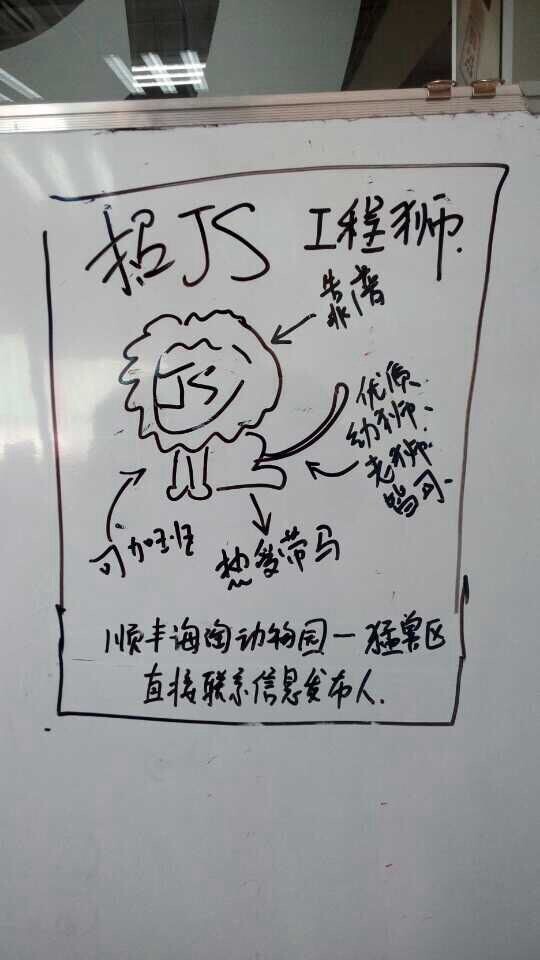 招JS 工程狮.
靠谱
JS
优质
幼狮.
老狮
皆可.
可加班
热爱带马
顺丰海淘动物园一猛兽区
直接联系信息发布人.